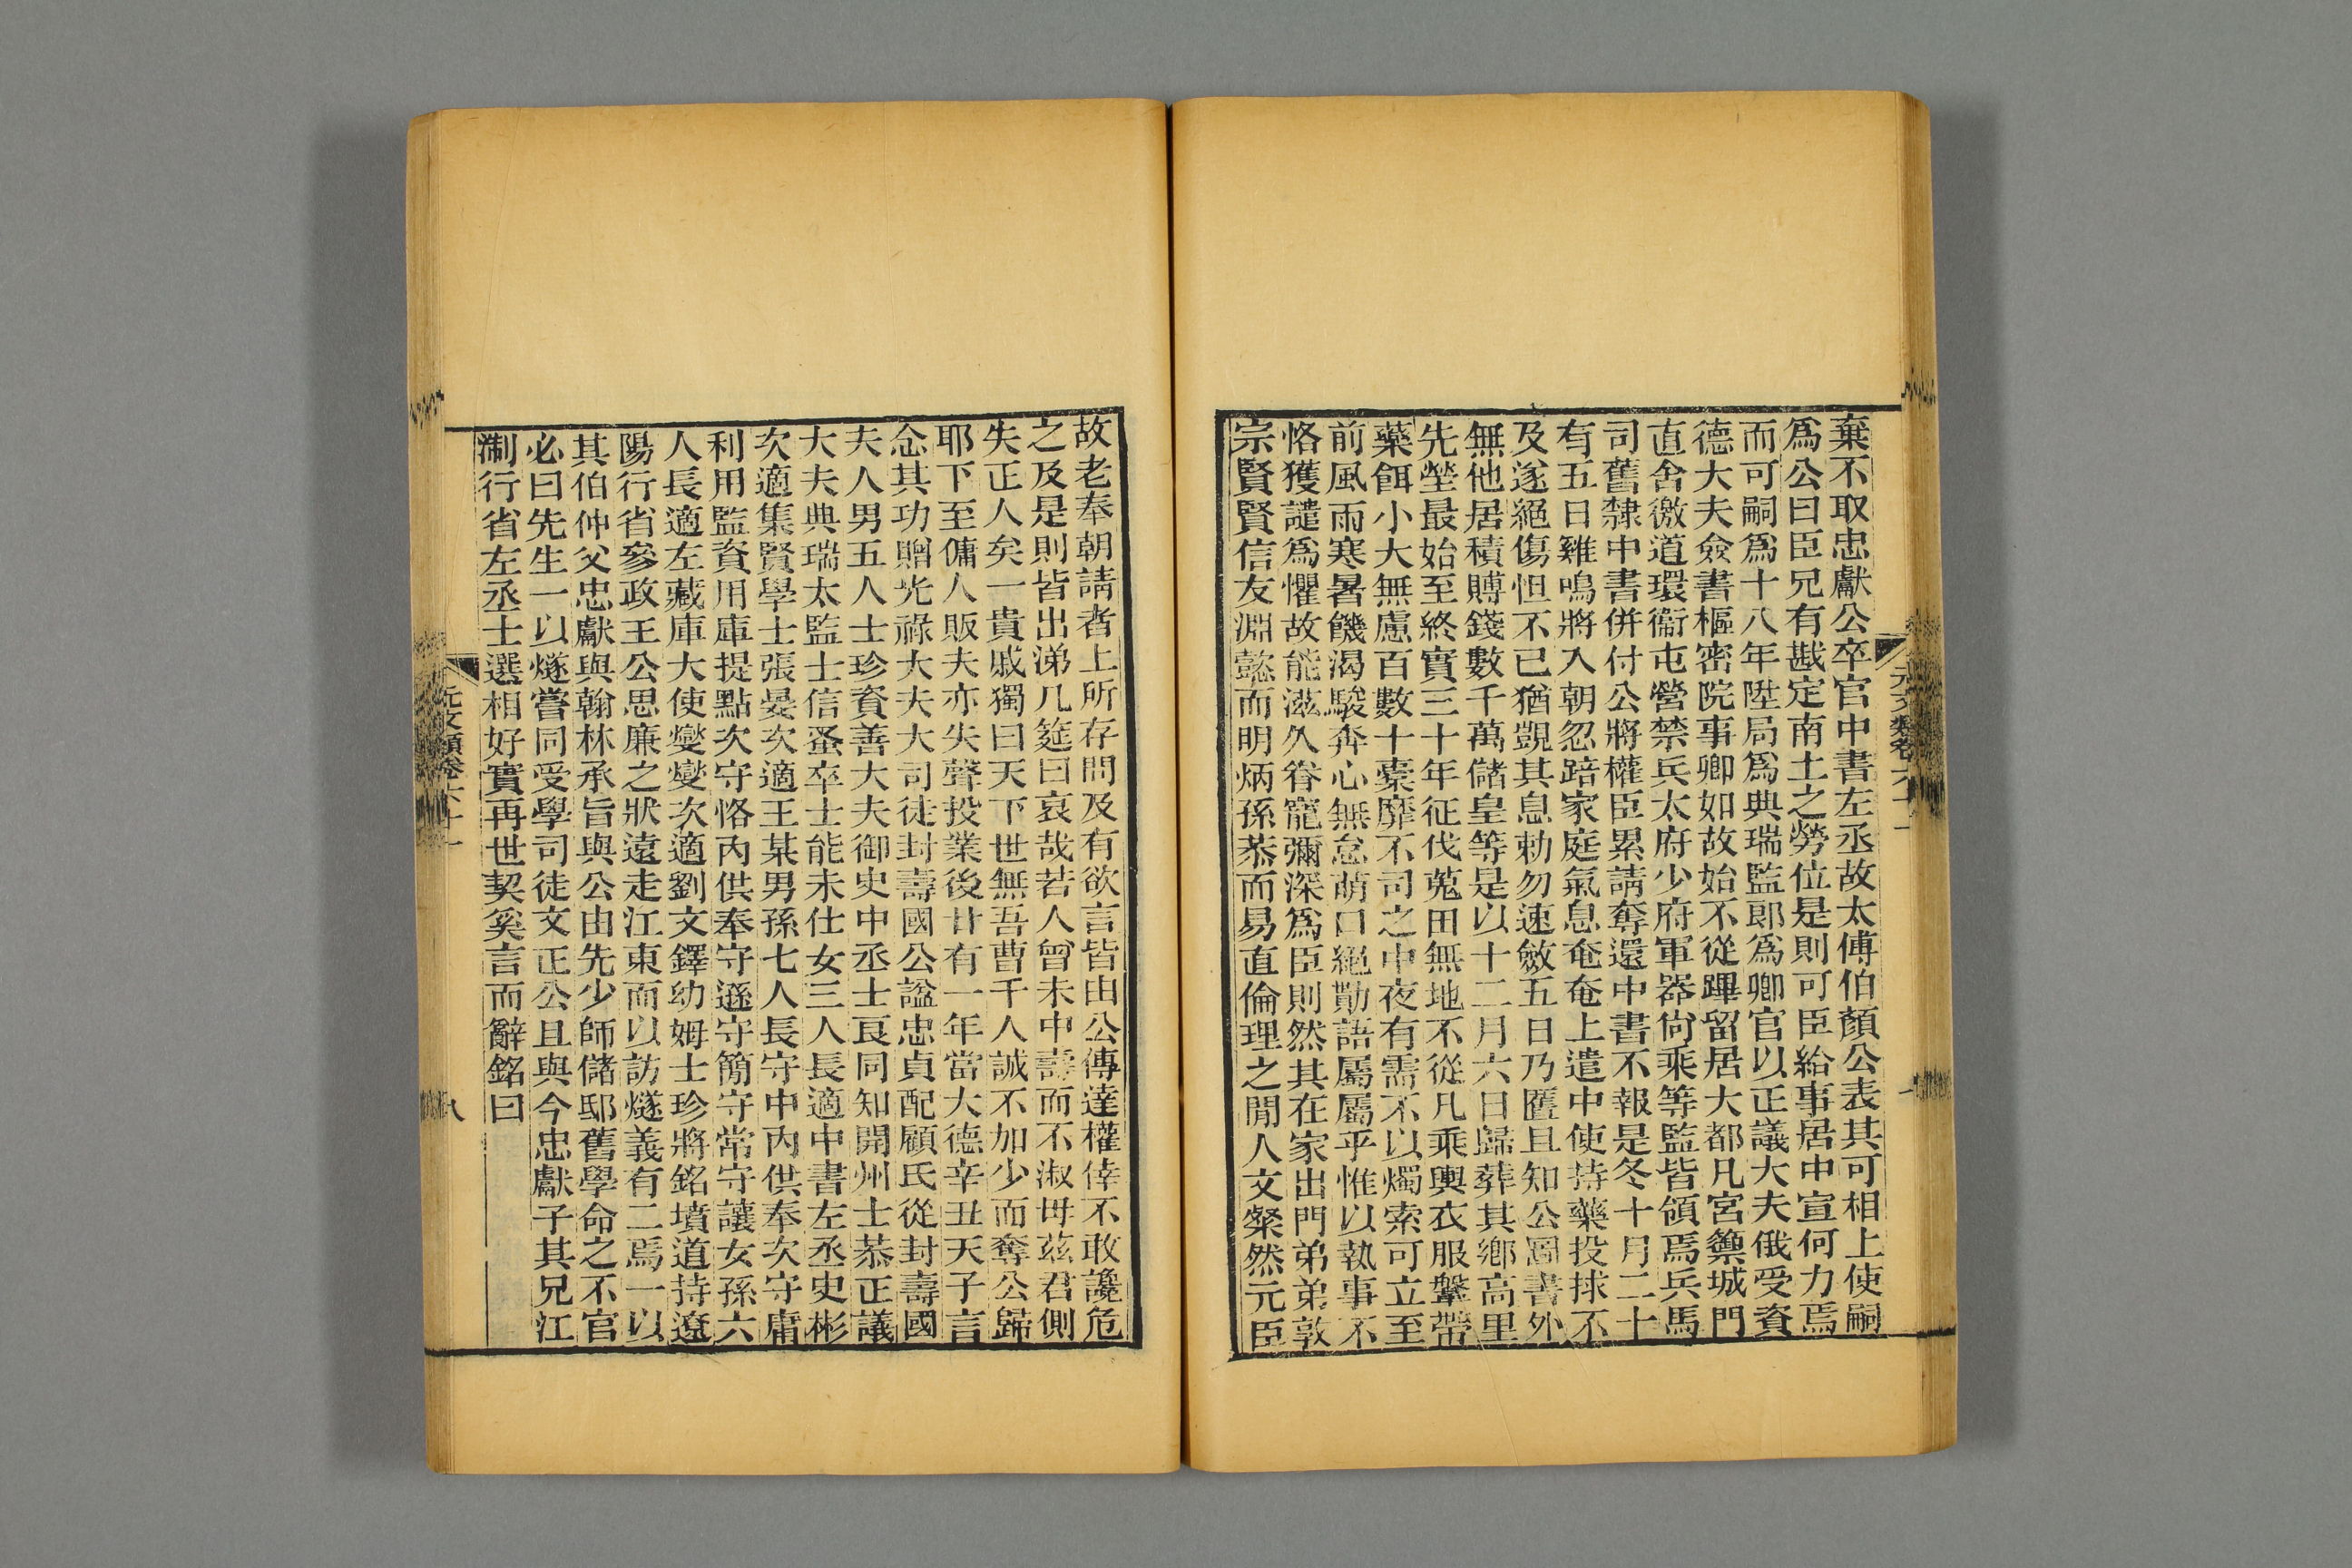 棄不取忠獻公卒官中書左丞故太傅伯顏公表其可相上使嗣
爲公曰臣兄有戡定南土之勞位是則可臣給事居中宣何力焉
而可嗣爲十八年陞局爲典瑞監郎爲卿官以正議大夫俄受資
德大夫僉書樞密院事卿如故始不從蹕留居大都凡宮籞城門
直舍徼道環衞屯營禁兵太府少府軍器尙乘等監皆領焉兵馬
司舊隸中書併付公將權臣累請奪還中書不報是冬十月二十
有五日雞鳴將入朝忽踣家庭氣息奄奄上遣中使持藥投捄不
及遂絕傷怛不已猶覬其息勅勿速斂五日乃匶且知公圖書外
無他居積賻錢數千萬儲皇等是以十二月六日歸葬其鄕高里
先塋最始至終實三十年征伐蒐田無地不從凡乘輿衣服鞶帶
藥餌小大無慮百數十櫜靡不司之中夜有需不以燭索可立至
前風雨寒暑饑渴駿奔心無怠萌口絕勩語屬屬乎惟以執事不
恪獲譴爲懼故能滋久眷寵彌深爲臣則然其在家出門弟弟敦
宗賢賢信友淵懿而明炳孫恭而易直倫理之閒人文粲然元臣
元文類卷六十一
故老奉朝請者上所存問及有欲言皆由公傳達權倖不敢讒危
之及是則皆出涕几筵曰哀哉若人曾未中壽而不淑毋茲君側
失正人矣一貴戚獨曰天下世無吾曹千人誠不加少而奪公歸
耶下至傭人販夫亦失聲投業後廿有一年當大德辛丑天子言
念其功贈光祿大夫大司徒封壽國公諡忠貞配顧氏從封壽國
夫人男五人士珍資善大夫御史中丞士良同知開州士恭正議
大夫典瑞太監士信蚤卒士能未仕女三人長適中書左丞史彬
次適集賢學士張晏次適王某男孫七人長守中內供奉次守庸
利用監資用庫提點次守恪內供奉守遜守簡守常守讓女孫六
人長適左藏庫大使燮燮次適劉文鐸幼姆士珍將銘墳道持遼
陽行省參政王公思廉之狀遠走江東而以訪燧義有二焉一以
其伯仲父忠獻與翰林承旨與公由先少師儲邸舊學命之不官
必曰先生一以燧嘗同受學司徒文正公且與今忠獻子其兄江
淛行省左丞士選相好實再世契奚言而辭銘曰
元文類卷六十一
八